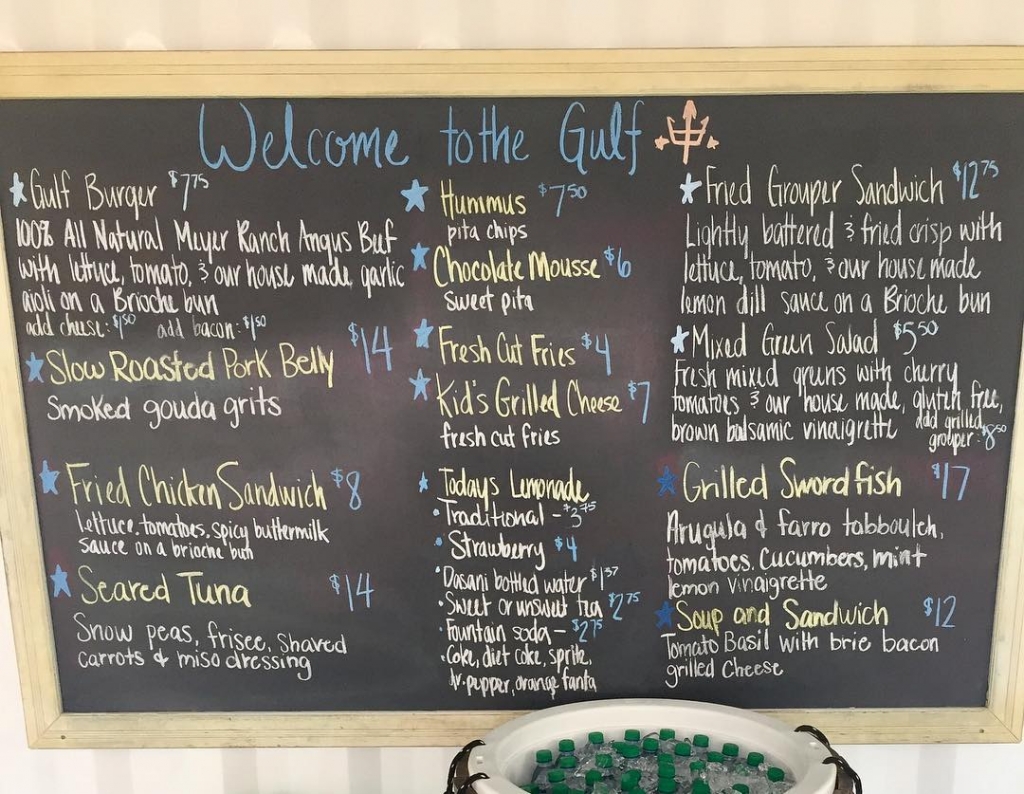 Welcome to the Gulf
Gulf Burger $7.75
100% All Natural Meyer Ranch Angus Beef
with lettuce, tomato, & our house made garlic
aioli on a Brioche bun
add cheese: $1.50 add bacon: $1.50
Slow Roasted Pork Belly $14
Smoked gouda grits
Fried Chicken Sandwich $8
Lettuce, tomatoes, spicy buttermilk
sauce on a brioche bun
Seared Tuna $14
Snow peas, frisee, shaved
carrots & miso dressing
Hummus $7.50
pita chips
Chocolate Mousse $6
Sweet pita
Fresh Cut Fries $4
Kid's Grilled Cheese $7
fresh cut fries
Todays Lemonade
• Traditional - $3.75
• Strawberry $4
• Dasani bottled water $1.37
• Sweet or unsweet tea $2.75
• Fountain soda - $2.75
• Coke, diet coke, sprite,
dr. pepper, orange fanta
Fried Grouper Sandwich $12.75
Lightly battered & fried crisp with
lettuce, tomato, & our house made
lemon dill sauce on a Brioche bun
Mixed Green Salad $5.50
Fresh mixed greens with cherry
tomatoes & our house made, gluten free,
brown balsamic vinaigrette add grilled
grouper: $8.50
Grilled Swordfish $17
Arugula & farro tabbouleh,
tomatoes. Cucumbers, mint
lemon vinaigrette
Soup and Sandwich $12
Tomato Basil with brie bacon
grilled Cheese